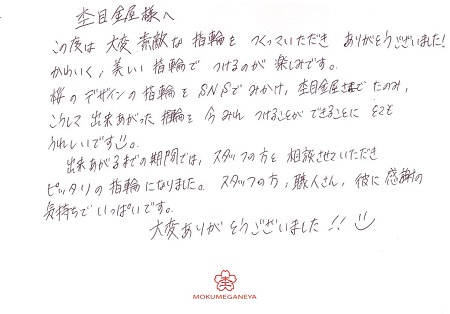 杢目金屋様へ
この度は大変素敵な指輪をつくっていただきありがとうございました!
かわいく、美しい指輪でつけるのが楽しみです。
桜のデザインの指輪をSNSでみかけ、杢目金屋さまでたのみ、
こうして出来あがった指輪を今みれつけることができることにとても
うれしいです。
出来あがるまでの期間では、スタッフの方と相談させていただき
ピッタリの指輪になりました。スタッフの方、職人さん、彼に感謝の
気持ちでいっぱいです。
大変ありがとうございました!!
MOKUMEGANEYA